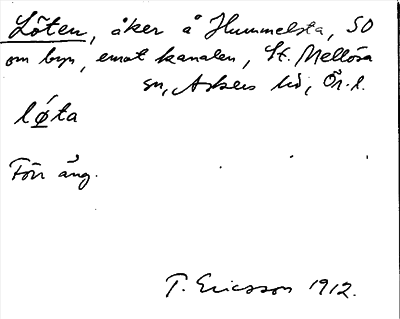 Löten, åker å Hummelsta, SO
om byn, emot kanalen, St. Mellösa
sn, Askers hd, Ör. l.
lǿta
Förr äng.
T. Ericsson 1912.